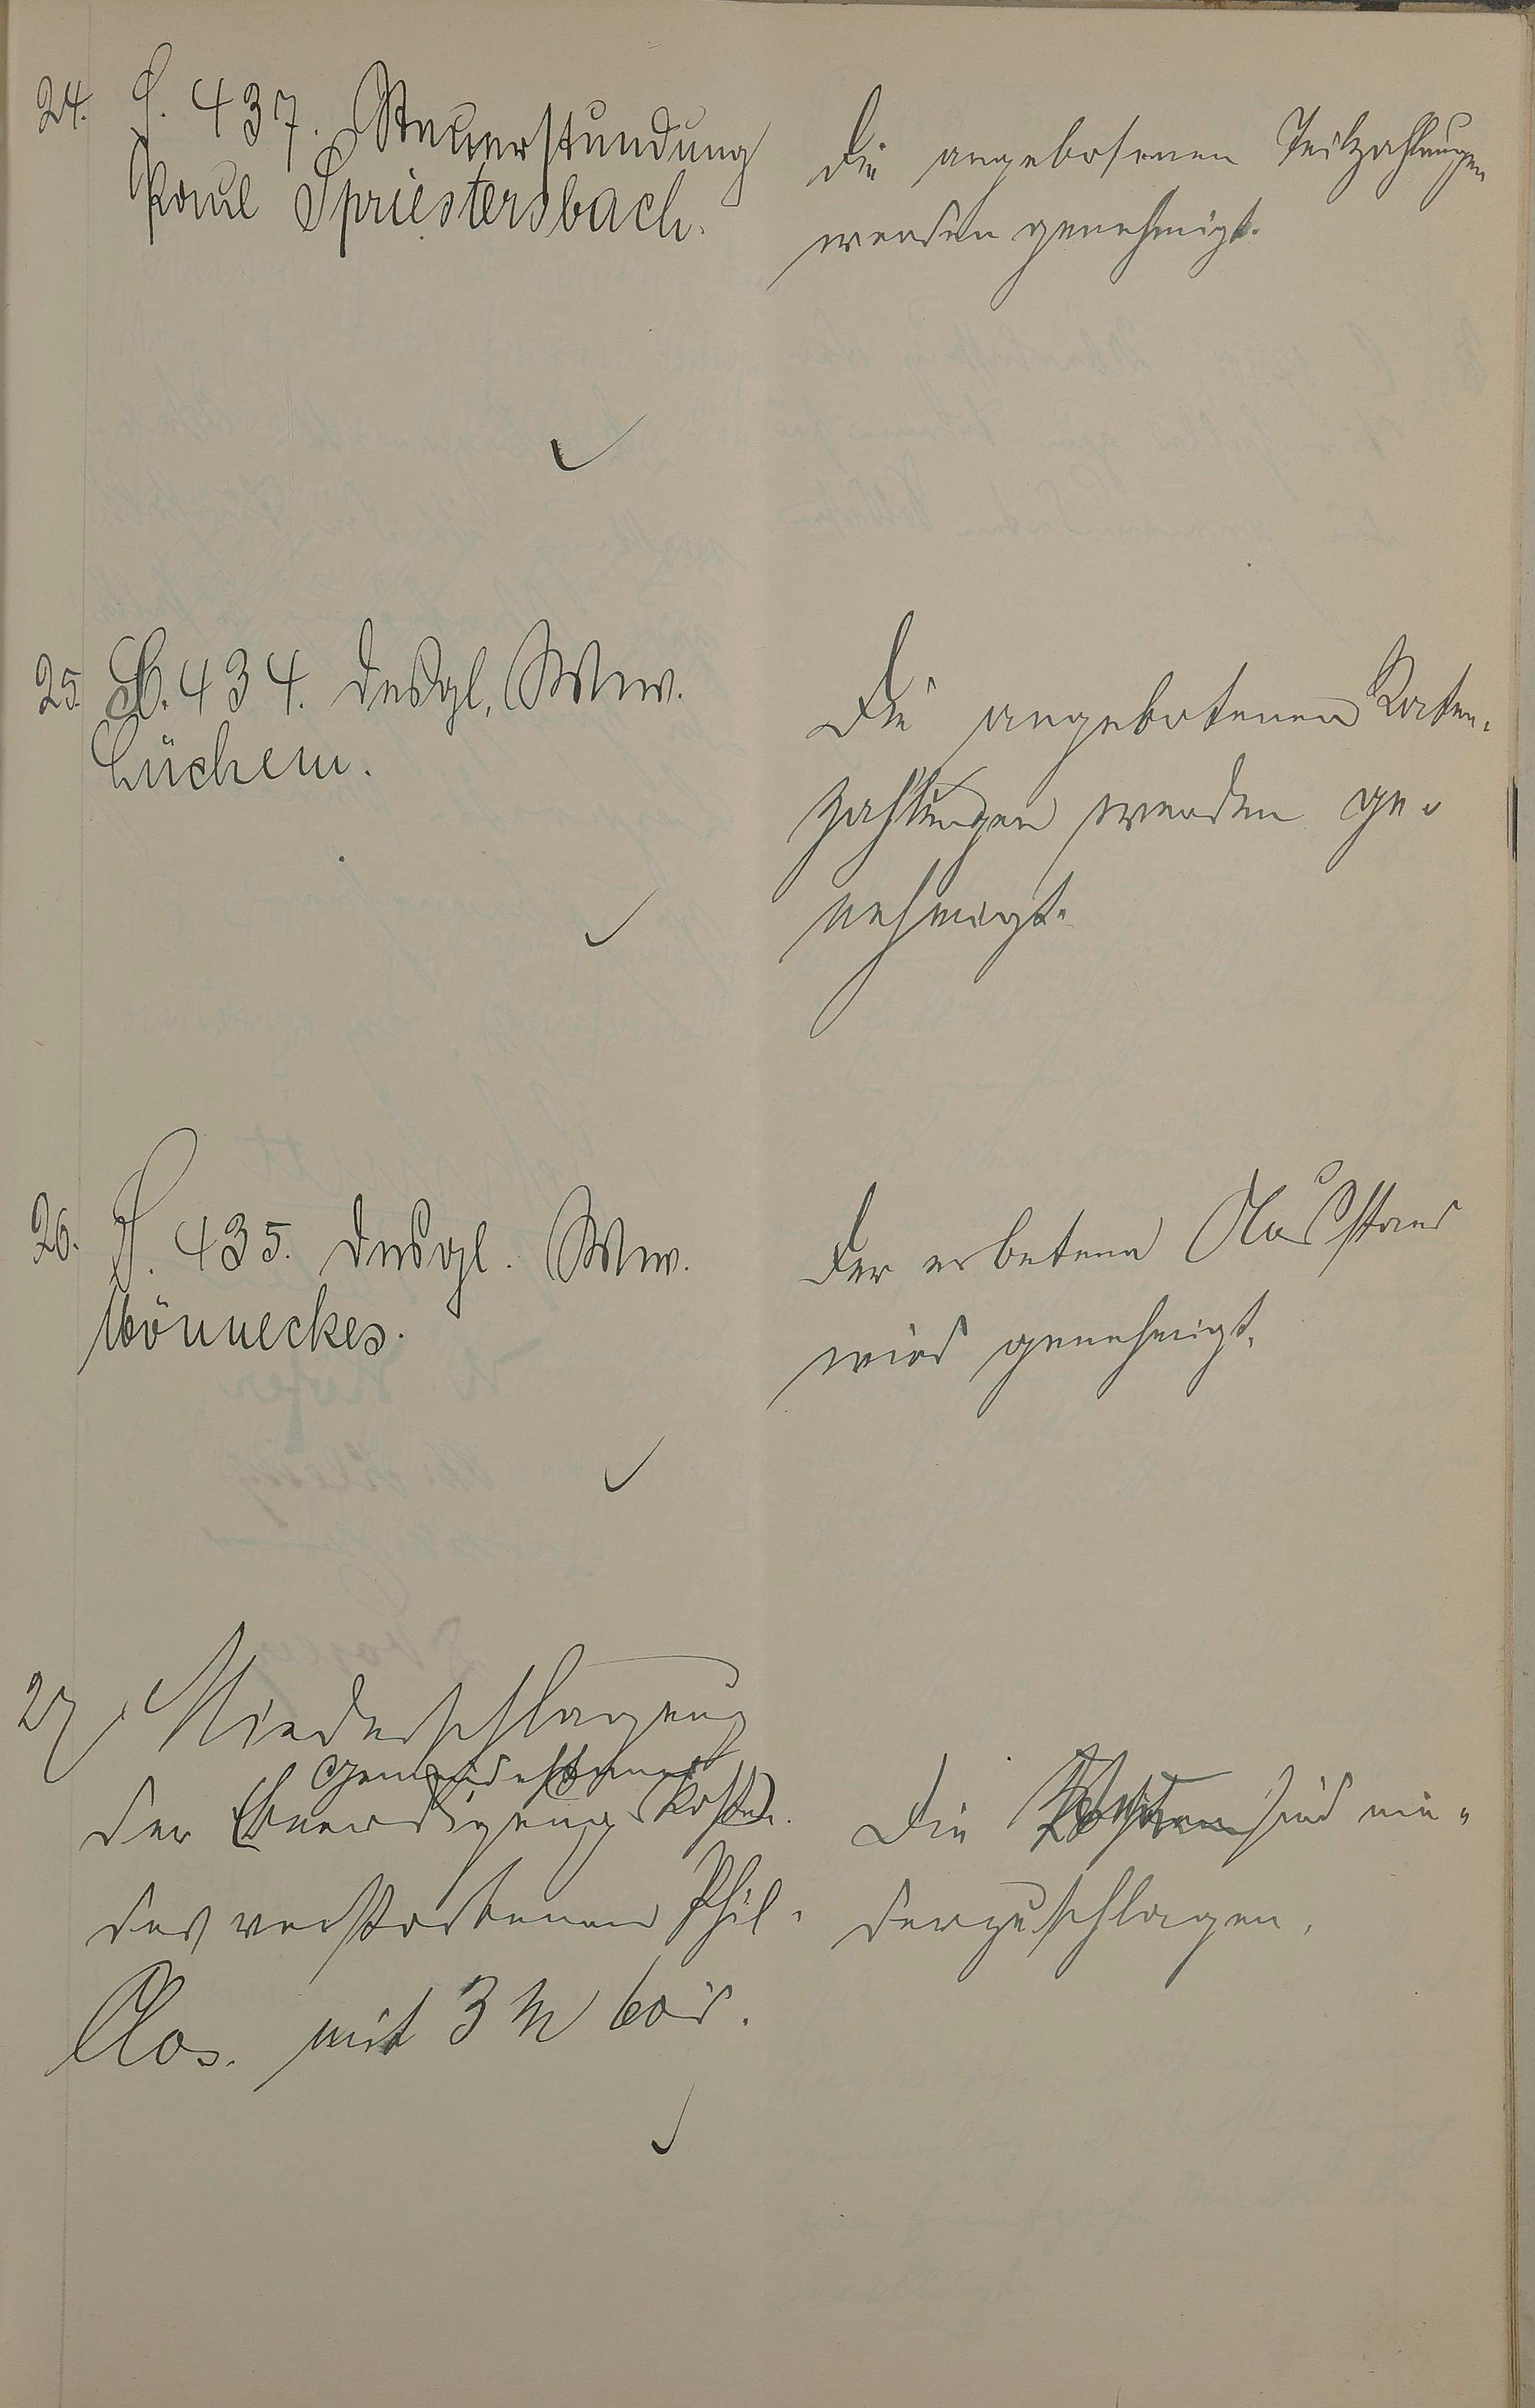 24. S. 437. Steuerstundung
Paul Spriestersbach.
Die angebotenen Teilzahlungen
werden genehmigt.
25. S. 434. desgl. Wwe.
Lüchem.
Die angebotenen Raten-
zahlungen werden ge-
nehmigt.
26. S. 435. desgl. Wwe.
Mönneckes.
Der erbetene Ausstand
wird genehmigt.
27. Niederschlagung
Gemeindesteuer
der (Beerdigungskosten)
des verstorbenen Phil.
Clos. mit 3 M
Die Kosten sind nie-
derzuschlagen.